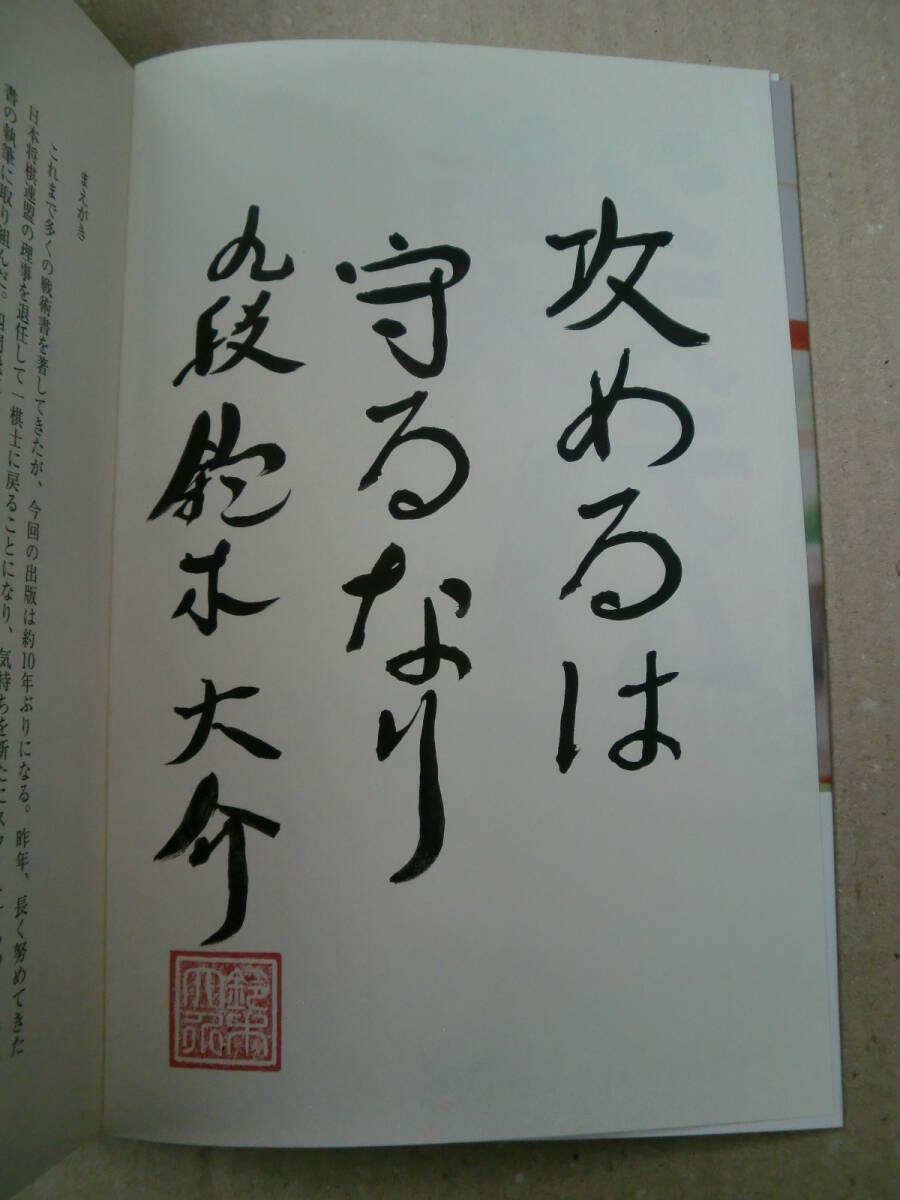 攻めるは
守るなり
九段 鈴木大介
鈴木大介
まえがき
これまで多くの戦術書を著してきたが、今回の出版は約10年ぶりになる。昨年、長く努めてきた
日本将棋連盟の理事を退任して一棋士に戻ることになり、気持ちを新たにスタ
書の執筆に取り組んだ。四間飛